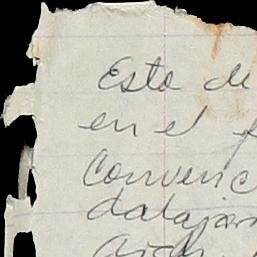 Esto de
en el f
convenc
dalajar